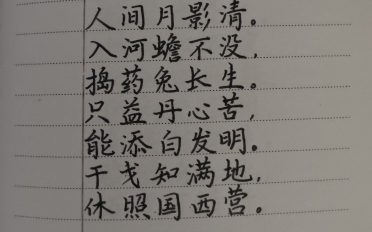 人间月影清。
入河蟾不没,
捣药兔长生。
只益丹心苦,
能添白发明。
干戈知满地,
休照国西营。